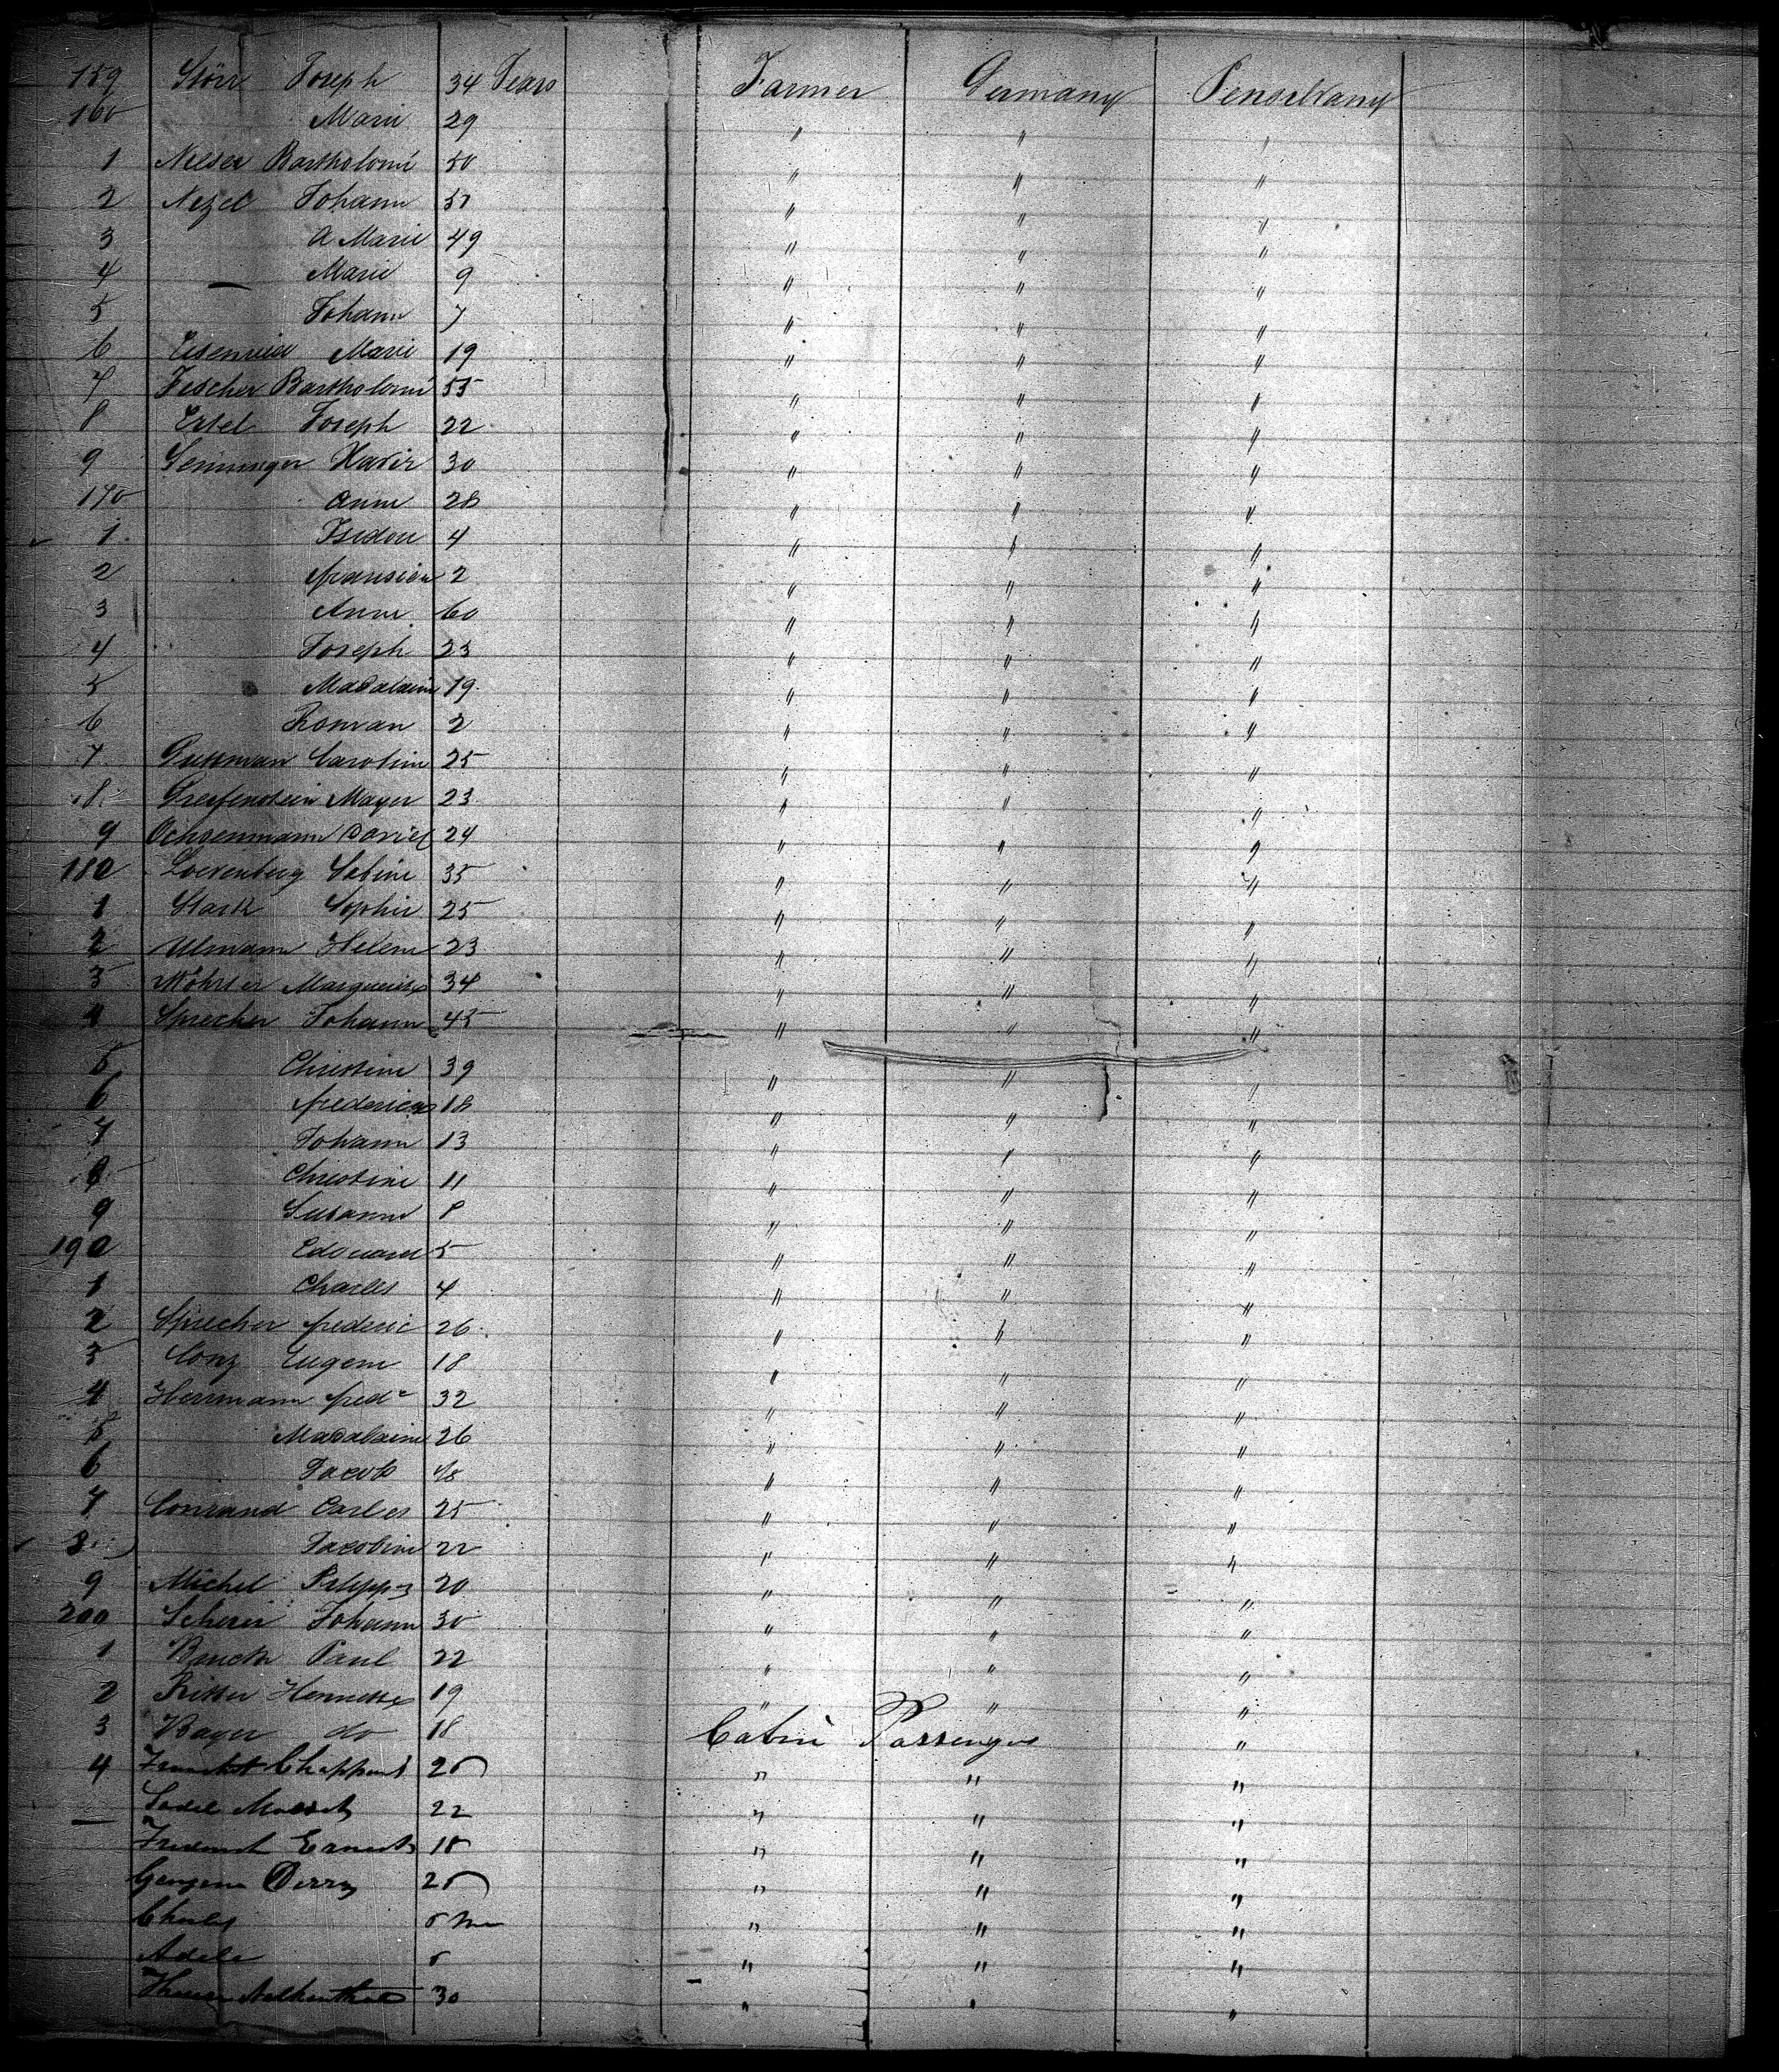 159 Störr Joseph 34 Years Farmer Germany Pensilvany
160 Marie 29 " " "
1 Nelser Bartholomé 50 " " "
2 Nezel Johann 51 " " "
3 A Marie 49 " " "
4 — Marie 9 " " "
5 Johann 7 " " "
6 Marie 19 " " "
7 Fischer Bartholomé 55 " " "
8 Ertel Joseph 22 " " "
9 Xavir 30 " " "
170 Anne 28 " " "
1 Isidore 4 " " "
2 2 " " "
3 Anne 60 " " "
4 Joseph 23 " " "
5 Madalaine 19 " " "
6 Roman 2 " " "
7 Gutman Caroline 25 " " "
8 Greifenstein Mayer 23 " " "
9 Ochsenmann David 24 " " "
180 Loevenberg Sabine 35 " " "
1 Stark Sophie 25 " " "
2 Ulmann Helene 23 " " "
3 Wöhrler Marguerite 34 " " "
4 Sprecher Johann 45 " " "
5 Christine 39 " " "
6 frederica 18 " " "
7 Johann 13 " " "
8 Christine 11 " " "
9 Susanne 8 " " "
190 Edouard 5 " " "
1 Charles 4 " " "
2 Sprecher frederic 26 " " "
3 Conz Eugene 18 " " "
4 Herrmann fred 32 " " "
5 Madalaine 26 " " "
6 Jacob " " "
7 Conrand Carles 25 " " "
8 Jacobine 22 " " "
9 Michel 20 " " "
200 Scherer Johann 30 " " "
1 Paul 22 " " "
2 Ritter Henriette 19 " " "
3 Bayer do 18 Cabin Passengers "
4 " " "
22 " " "
Ernest 18 " " "
" " "
Charles " " "
Adele " " "
30 " " "